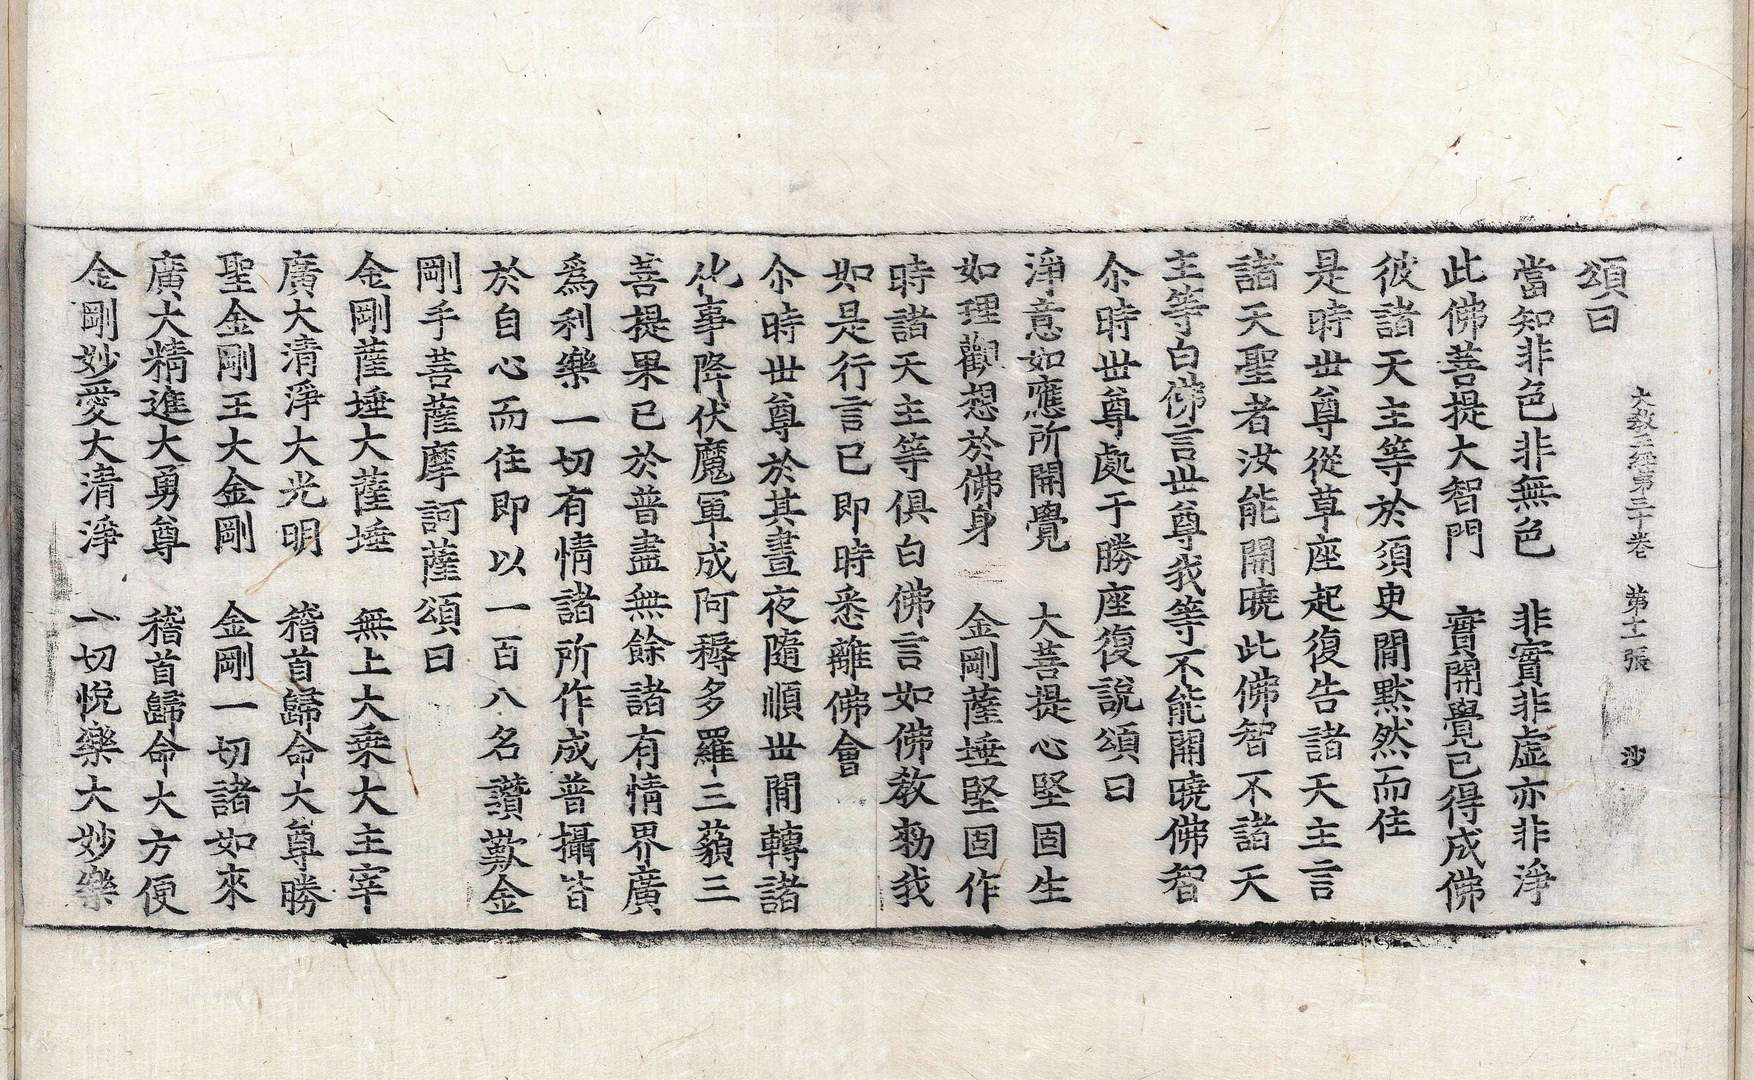 大教王經第三十卷　第十二張　沙
頌曰
當知非色非無色　非實非虛亦非淨
此佛菩提大智門　實開覺已得成佛
彼諸天主等於須臾閒默然而住
是時世尊從草座起復告諸天主言
諸天聖者汝能開曉此佛智不諸天
主等白佛言世尊我等不能開曉佛智
尒時世尊處于勝座復說頌曰
淨意如應所開覺　大菩提心堅固生
如理觀想於佛身　金剛薩埵堅固作
時諸天主等俱白佛言如佛教勑我
如是行言已即時悉離佛會
尒時世尊於其晝夜隨順世閒轉諸
化事降伏魔軍成阿耨多羅三藐三
菩提果已於普盡無餘諸有情界廣
爲利樂一切有情諸所作成普攝皆
於自心而住即以一百八名讚歎金
剛手菩薩摩訶薩頌曰
金剛薩埵大薩埵　無上大乘大主宰
廣大清淨大光明　稽首歸命大尊勝
聖金剛王大金剛　金剛一切諸如來
廣大精進大勇尊　稽首歸命大方便
金剛妙愛大清淨　一切悅樂大妙樂